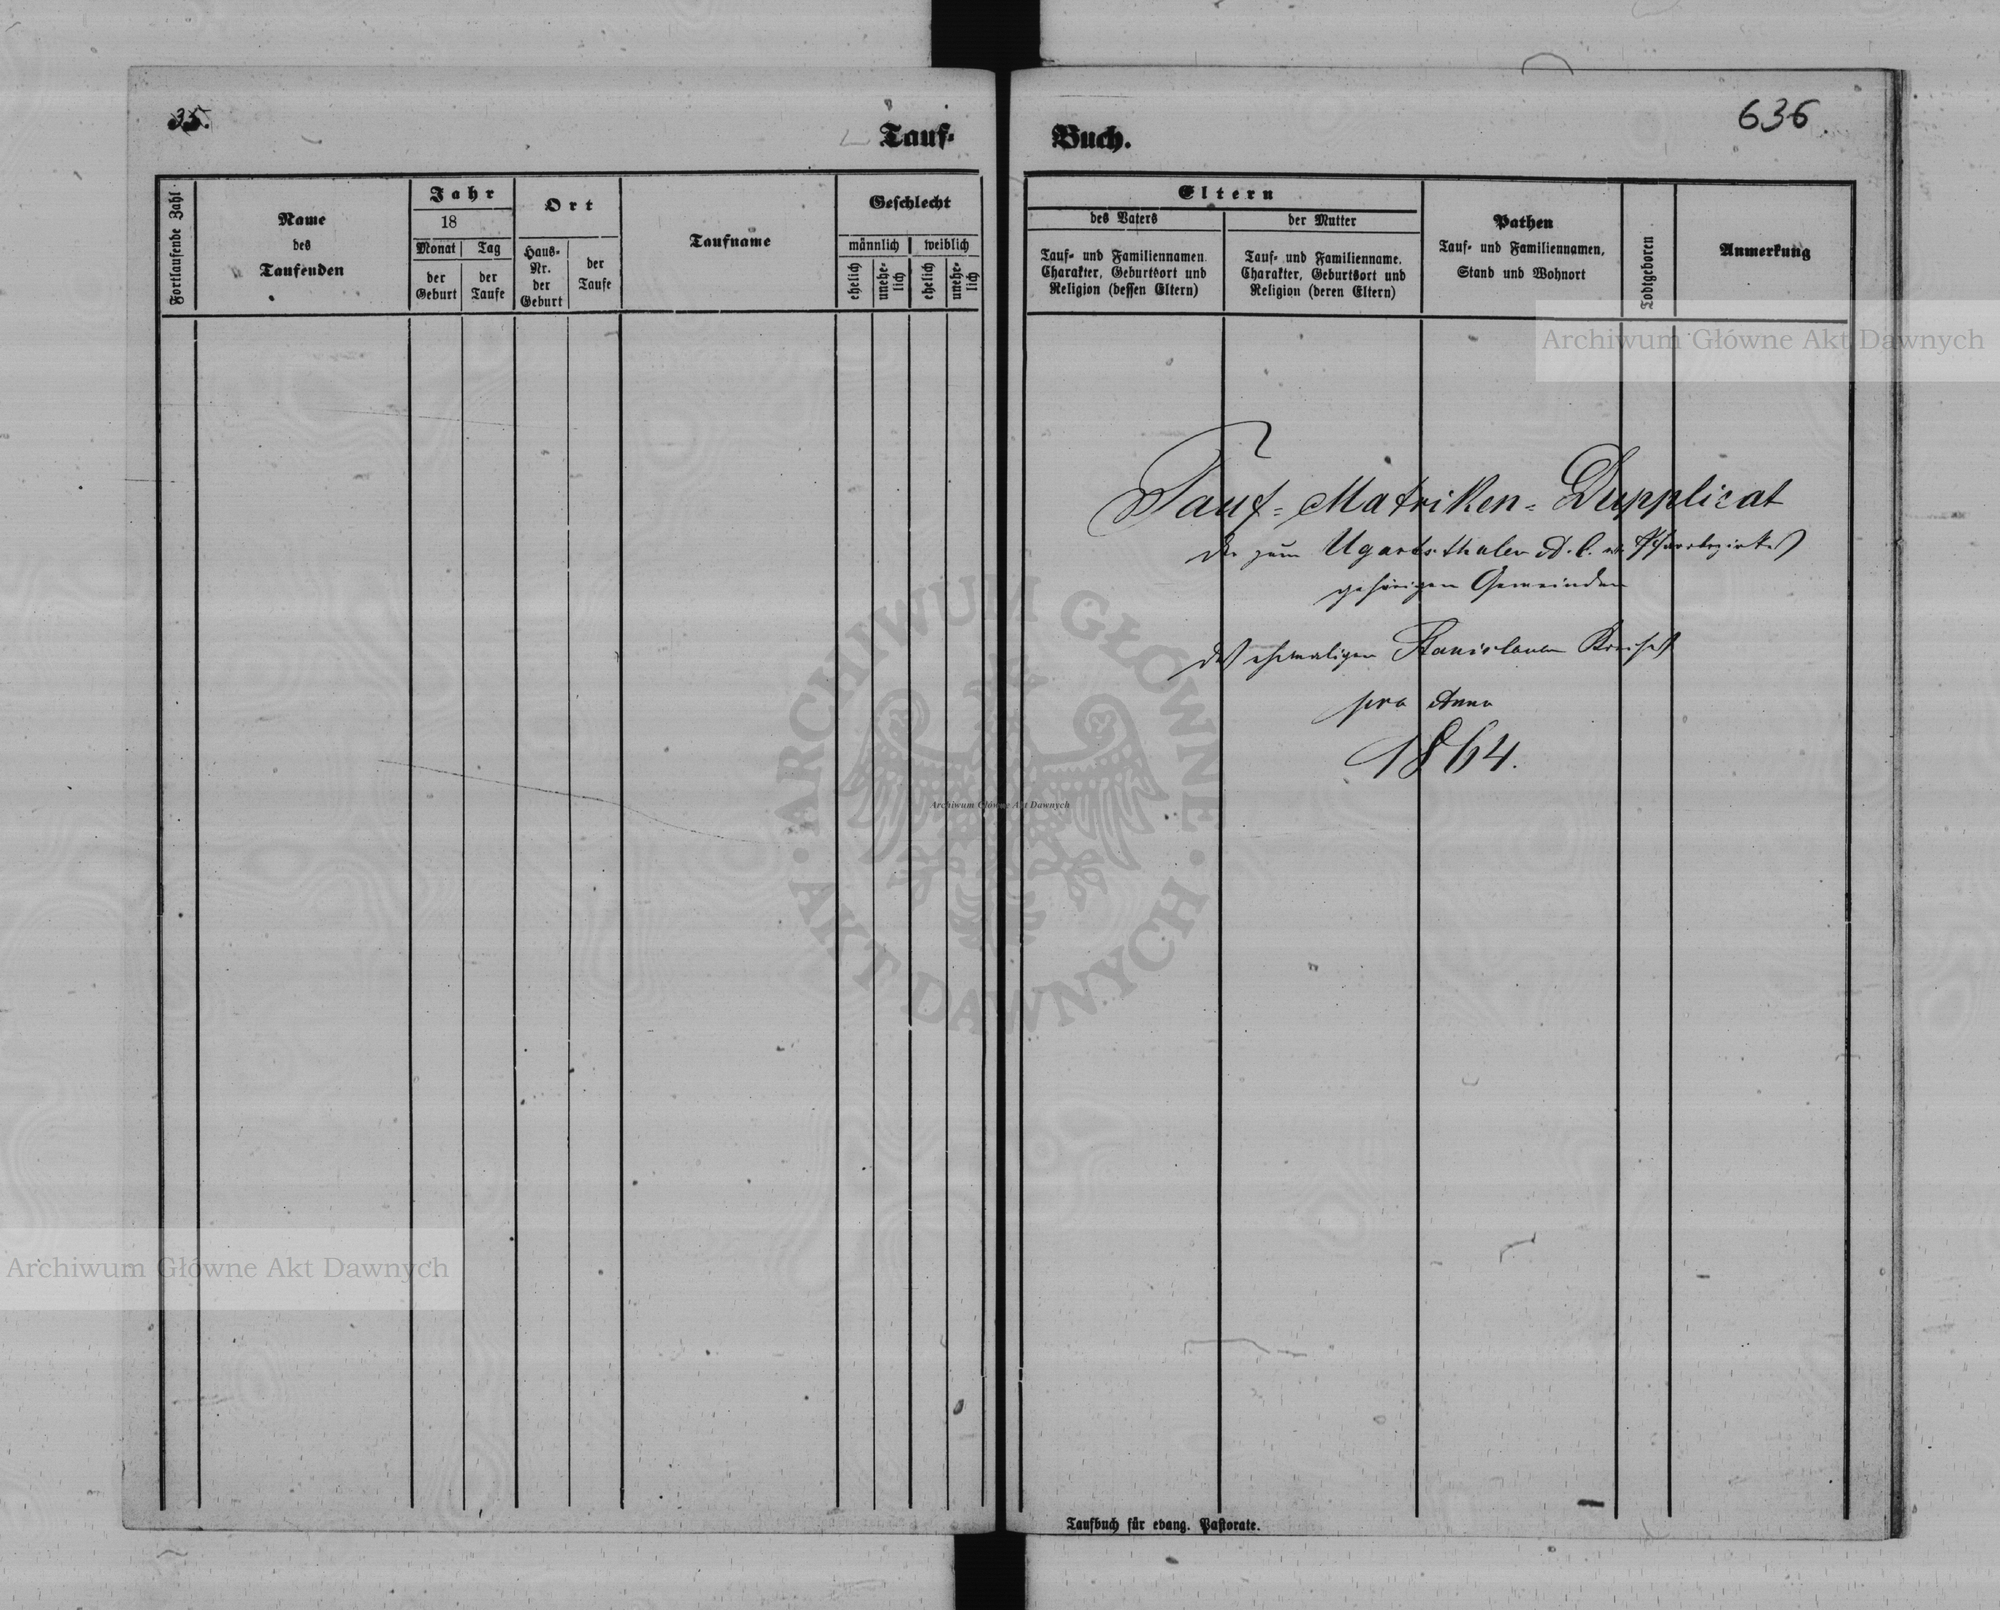 35.
636.
Tauf-
Buch.
Fortlaufende Zahl
Name
des
Taufenden
Jahr
18
Monat
Tag
der
Geburt
der
Taufe
Ort
Haus-
Nr.
der
Geburt
der
Taufe
Taufname
Geschlecht
männlich
weiblich
ehelich
unehe-
lich
ehelich
unehe-
lich
Eltern
des Vaters
der Mutter
Tauf- und Familiennamen.
Charakter, Geburtsort und
Religion (dessen Eltern)
Tauf- und Familienname.
Charakter, Geburtsort und
Religion (deren Eltern)
Pathen
Tauf- und Familiennamen,
Stand und Wohnort
Todtgeboren
Anmerkung
Archiwum Główne Akt Dawnych
Tauf-Matriken-Dupplicat
der zum Ugartsthaler A. C. Pfarrbezirkes
gehörigen Gemeinden
des ehemaligen Stanislauer Kreises
pro Anno
1864.
ARCHIWUM GŁÓWNE
AKT DAWNYCH
Archiwum Główne Akt Dawnych
Archiwum Główne Akt Dawnych
Taufbuch für evang. Pastorate.